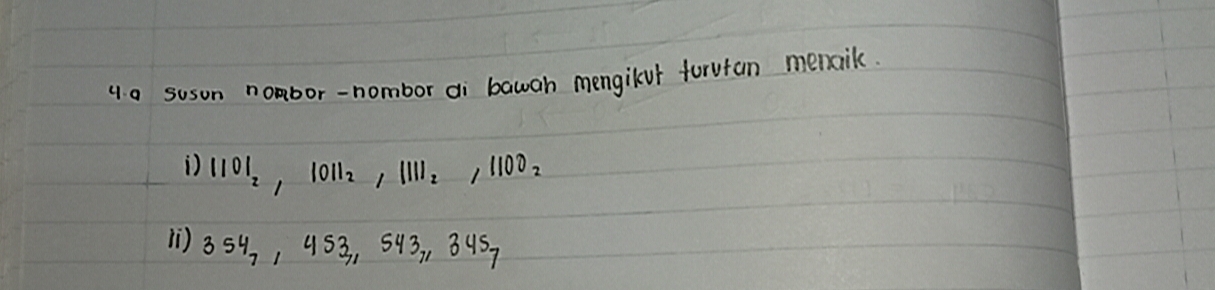 4.a susun nombor-nombor di bawah mengikut turutan menaik.
i) 1101₂, 1011₂, 1111₂, 1100₂
ii) 354₇, 453₇, 543₇, 345₇